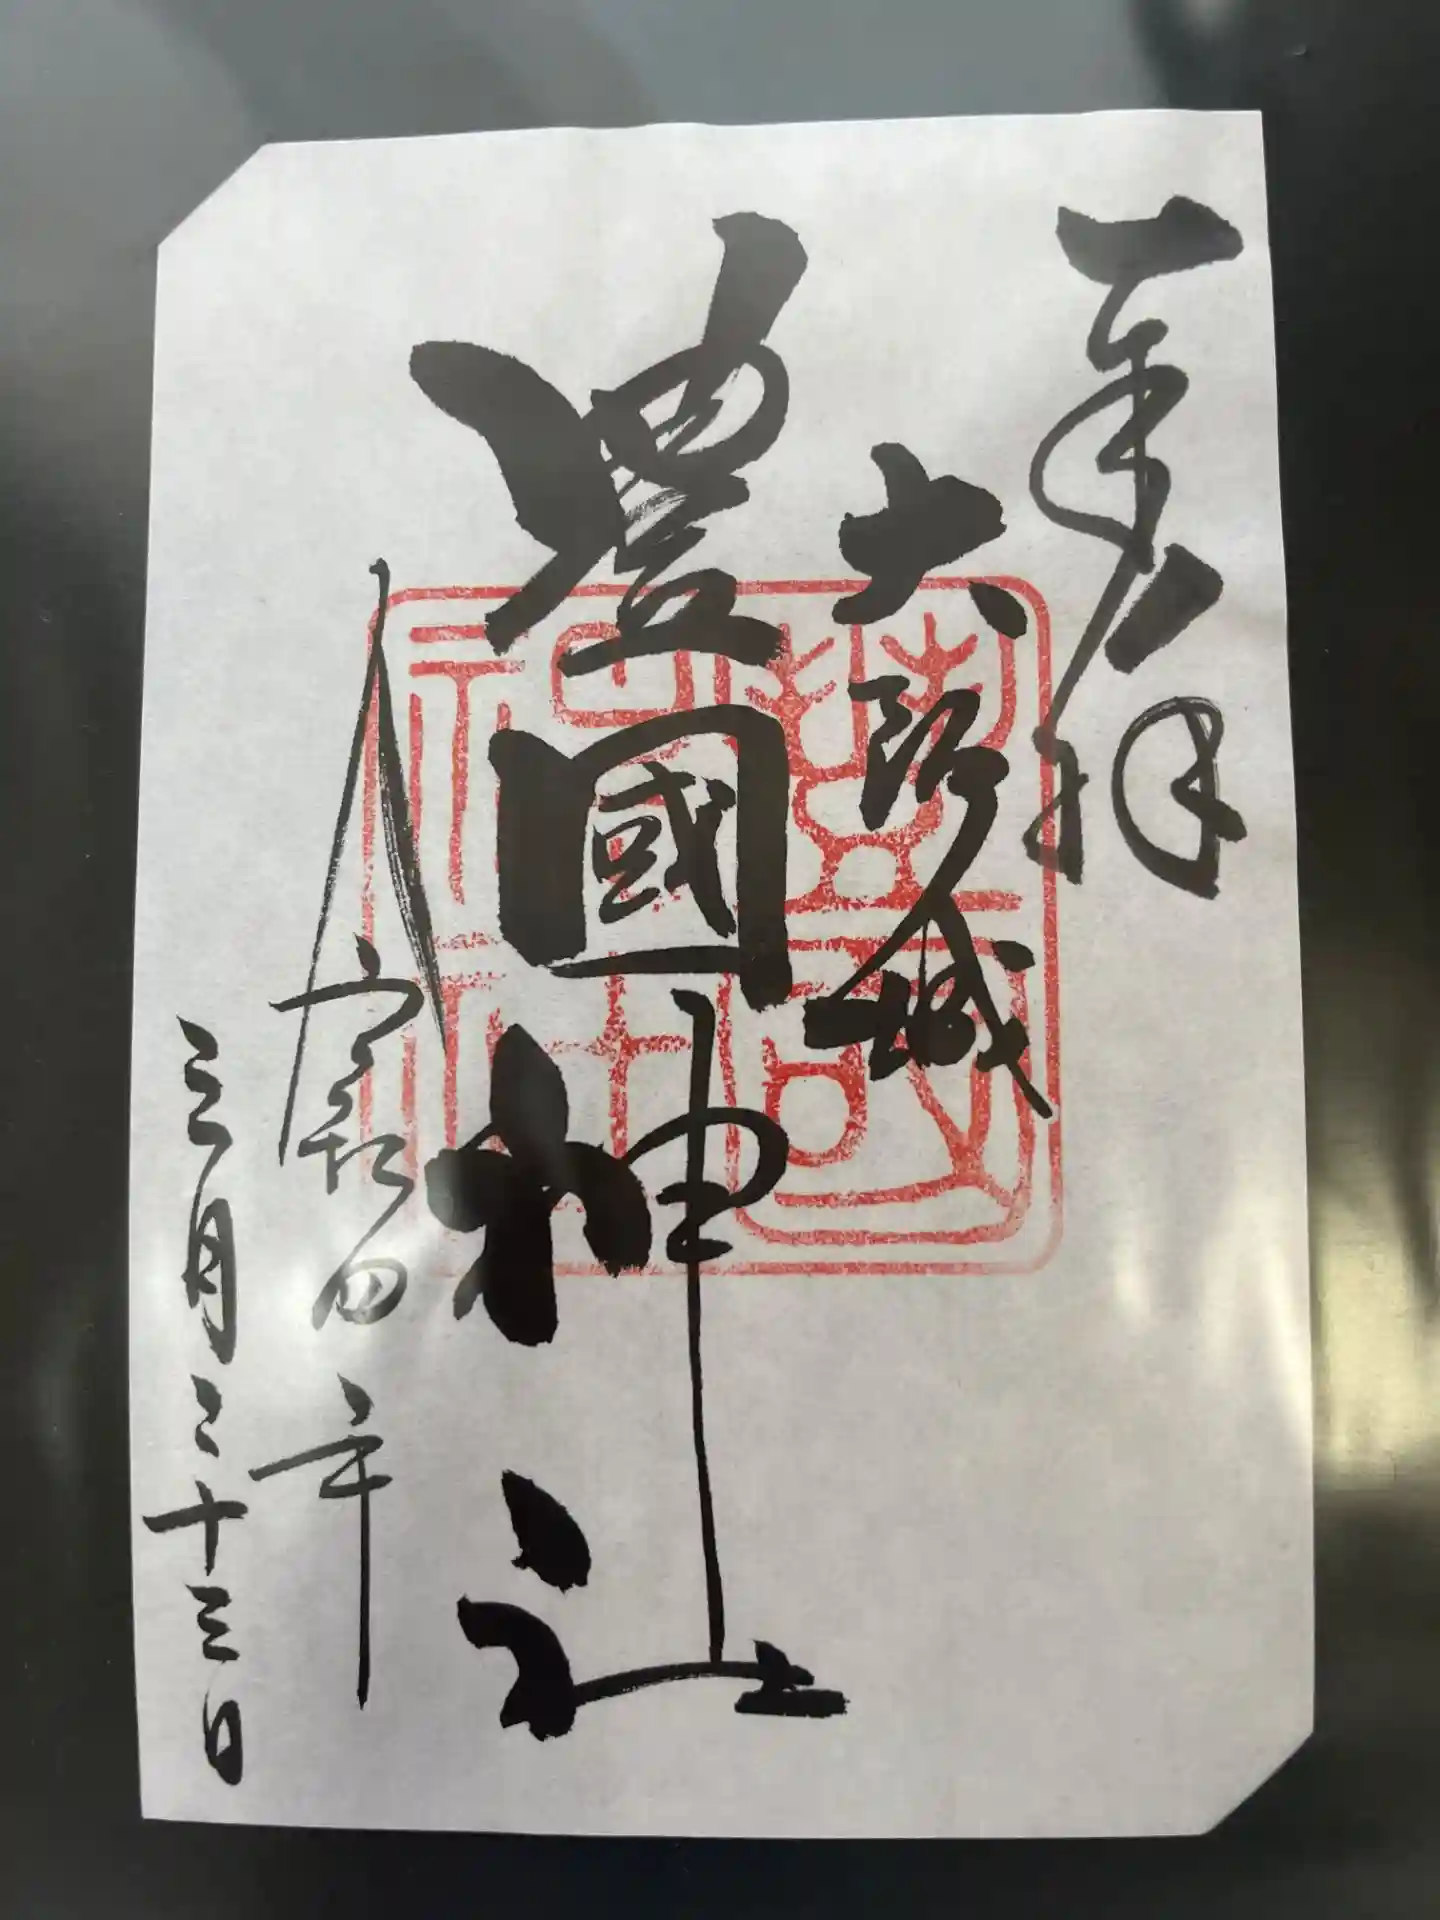 奉拝
大阪城
豊國神社
令和四年
三月二十三日
豐國
神社